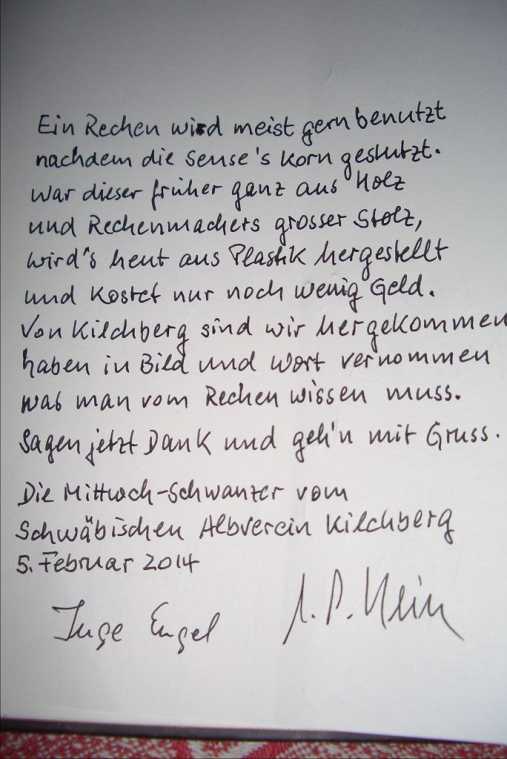 Ein Rechen wird meist gern benutzt
nachdem die Sense's Korn gestutzt.
War dieser früher ganz aus Holz
und Rechenmachers grosser Stolz,
wird's heut aus Plastik hergestellt
und kostet nur noch wenig Geld.
Von Kilchberg sind wir hergekommen
haben in Bild und Wort vernommen
was man vom Rechen wissen muss.
Sagen jetzt Dank und geh'n mit Gruss.
Die Mittwoch-Schwanzer vom
Schwäbischen Albverein Kilchberg
5. Februar 2014
Inge Engel